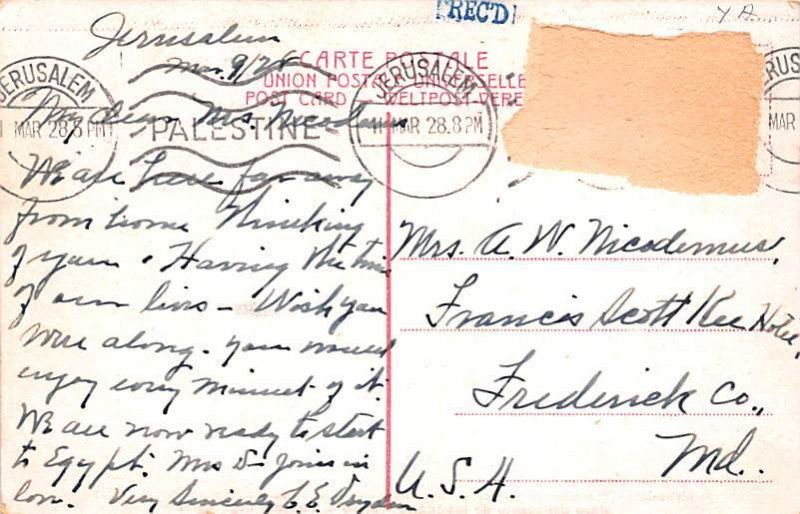 REC'D
Y A
Jerusalem
Mar 9/28
CARTE POSTALE
UNION POSTALE UNIVERSELLE
POST CARD — WELTPOSTVEREIN
JERUSALEM
MAR 28.8 PM
PALESTINE
JERUSALEM
11 MAR 28.8 PM
JERUSALEM
MAR
My dear Mrs. Nicodemus
We are here far away
from home Thinking
of you. Having the time
of our lives — Wish you
were along. you would
enjoy every minuet of it.
We are now ready to start
to Egypt. Mrs D— joins in
love. Very Sincerely C. E. Dryden
Mrs. A. W. Nicodemus,
Francis Scott Kee Hotel,
Frederick Co.,
Md.
U. S. A.